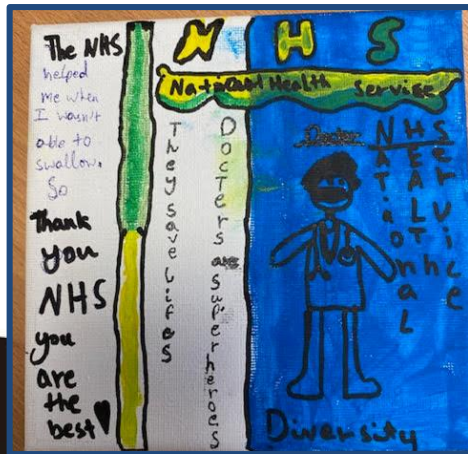 The NHS
helped
me when
I wasn't
able to
swallow.
So
Thank
you
NHS
you
are
the
best!
N H S
National Health Service
They save lifes
Docters are superheroes
Docter
NATional
HEALTHh
Service
Diversity